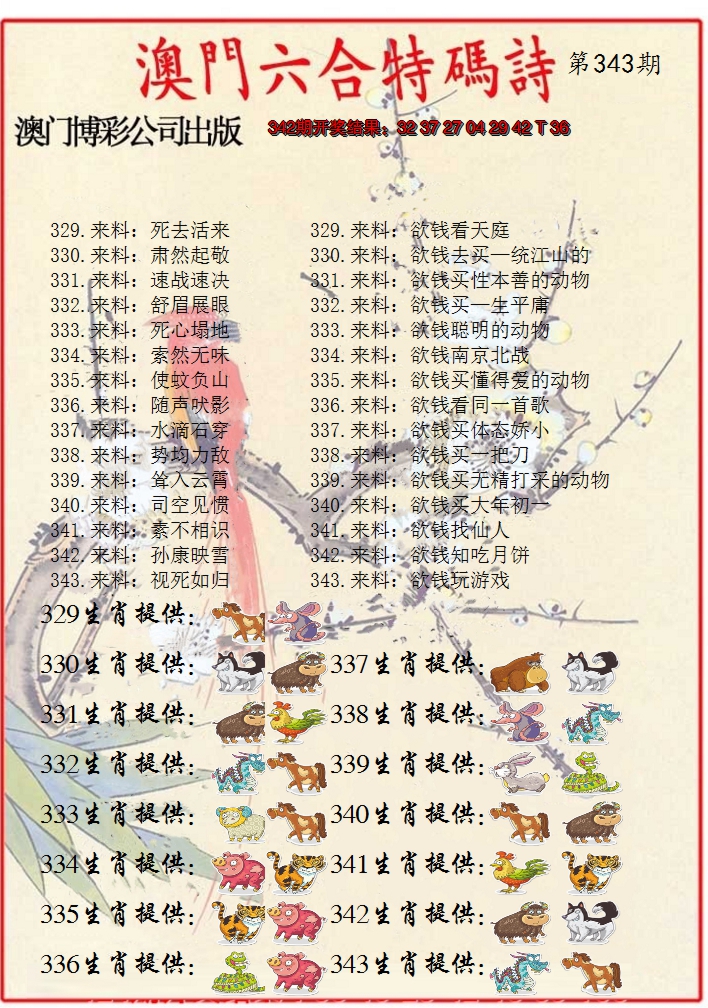 澳門六合特碼詩 第343期
澳门博彩公司出版 342期开奖结果：32 37 27 04 29 42 T 36
329.来料：死去活来 329.来料：欲钱看天庭
330.来料：肃然起敬 330.来料：欲钱去买一统江山的
331.来料：速战速决 331.来料：欲钱买性本善的动物
332.来料：舒眉展眼 332.来料：欲钱买一生平庸
333.来料：死心塌地 333.来料：欲钱聪明的动物
334.来料：索然无味 334.来料：欲钱南京北战
335.来料：使蚊负山 335.来料：欲钱买懂得爱的动物
336.来料：随声吠影 336.来料：欲钱看同一首歌
337.来料：水滴石穿 337.来料：欲钱买体态娇小
338.来料：势均力敌 338.来料：欲钱买一把刀
339.来料：耸入云霄 339.来料：欲钱买无精打采的动物
340.来料：司空见惯 340.来料：欲钱买大年初一
341.来料：素不相识 341.来料：欲钱找仙人
342.来料：孙康映雪 342.来料：欲钱知吃月饼
343.来料：视死如归 343.来料：欲钱玩游戏
329生肖提供：
330生肖提供： 337生肖提供：
331生肖提供： 338生肖提供：
332生肖提供： 339生肖提供：
333生肖提供： 340生肖提供：
334生肖提供： 341生肖提供：
335生肖提供： 342生肖提供：
336生肖提供： 343生肖提供：